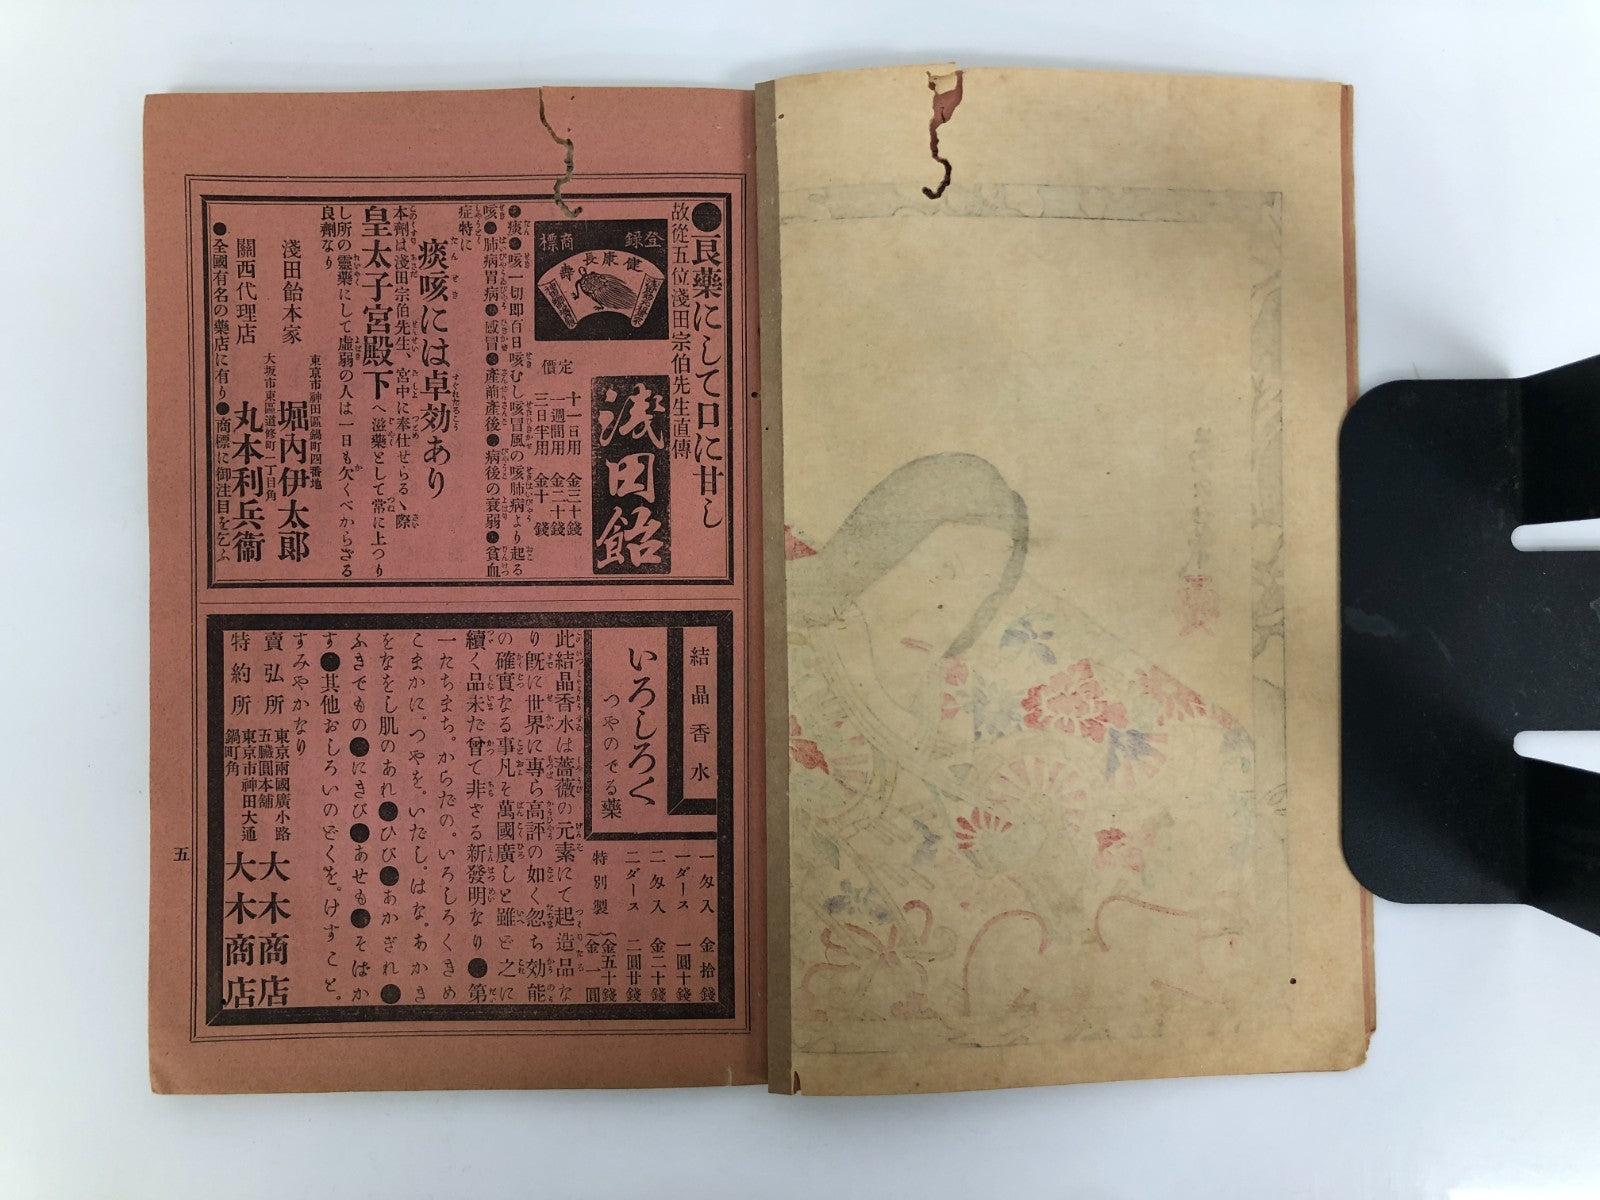 ●良藥にして口に甘し
故從五位淺田宗伯先生直傳
登録商標
健康長壽
淺田飴
定價
十一日用 金三十錢
一週間用 金二十錢
三日半用 金十錢
●痰●咳一切即百日咳むし咳冒風の咳肺病より起る
咳●肺病胃病●感冒●產前產後●病後の衰弱●貧血
症特に
痰咳には卓効あり
本劑は淺田宗伯先生、宮中に奉仕せらるゝ際
皇太子宮殿下へ滋藥として常に上つり
し所の靈藥にして虛弱の人は一日も欠くべからざる
良劑なり
淺田飴本家 東京市神田區鍋町四番地 堀内伊太郎
關西代理店 大坂市東區道修町一丁目角 丸本利兵衞
●全國有名の藥店に有り●商標に御注目を乞ふ
結晶香水
いろしろく
つやのでる藥
一匁入 金拾錢
一ダース 一圓十錢
二匁入 金二十錢
二ダース 二圓廿錢
特別製 金五十錢 金一圓
此結晶香水は薔薇の元素にて起造品な
り既に世界に專ら高評の如く忽ち効能
の確實なる事凡そ萬國廣しと雖ど之に
續く品未だ曾て非ざる新發明なり●第
一たちまち。からだの。いろしろくきめ
こまかに。つやを。いだし。はな。あかき
をなをし肌のあれ●ひび●あかぎれ●
ふきでもの●にきび●あせも●そばか
す●其他おしろいのどくを。けすこと。
すみやかなり
賣弘所 東京兩國廣小路 五臟圓本舖 大木商店
特約所 東京市神田大通鍋町角 大木商店
五